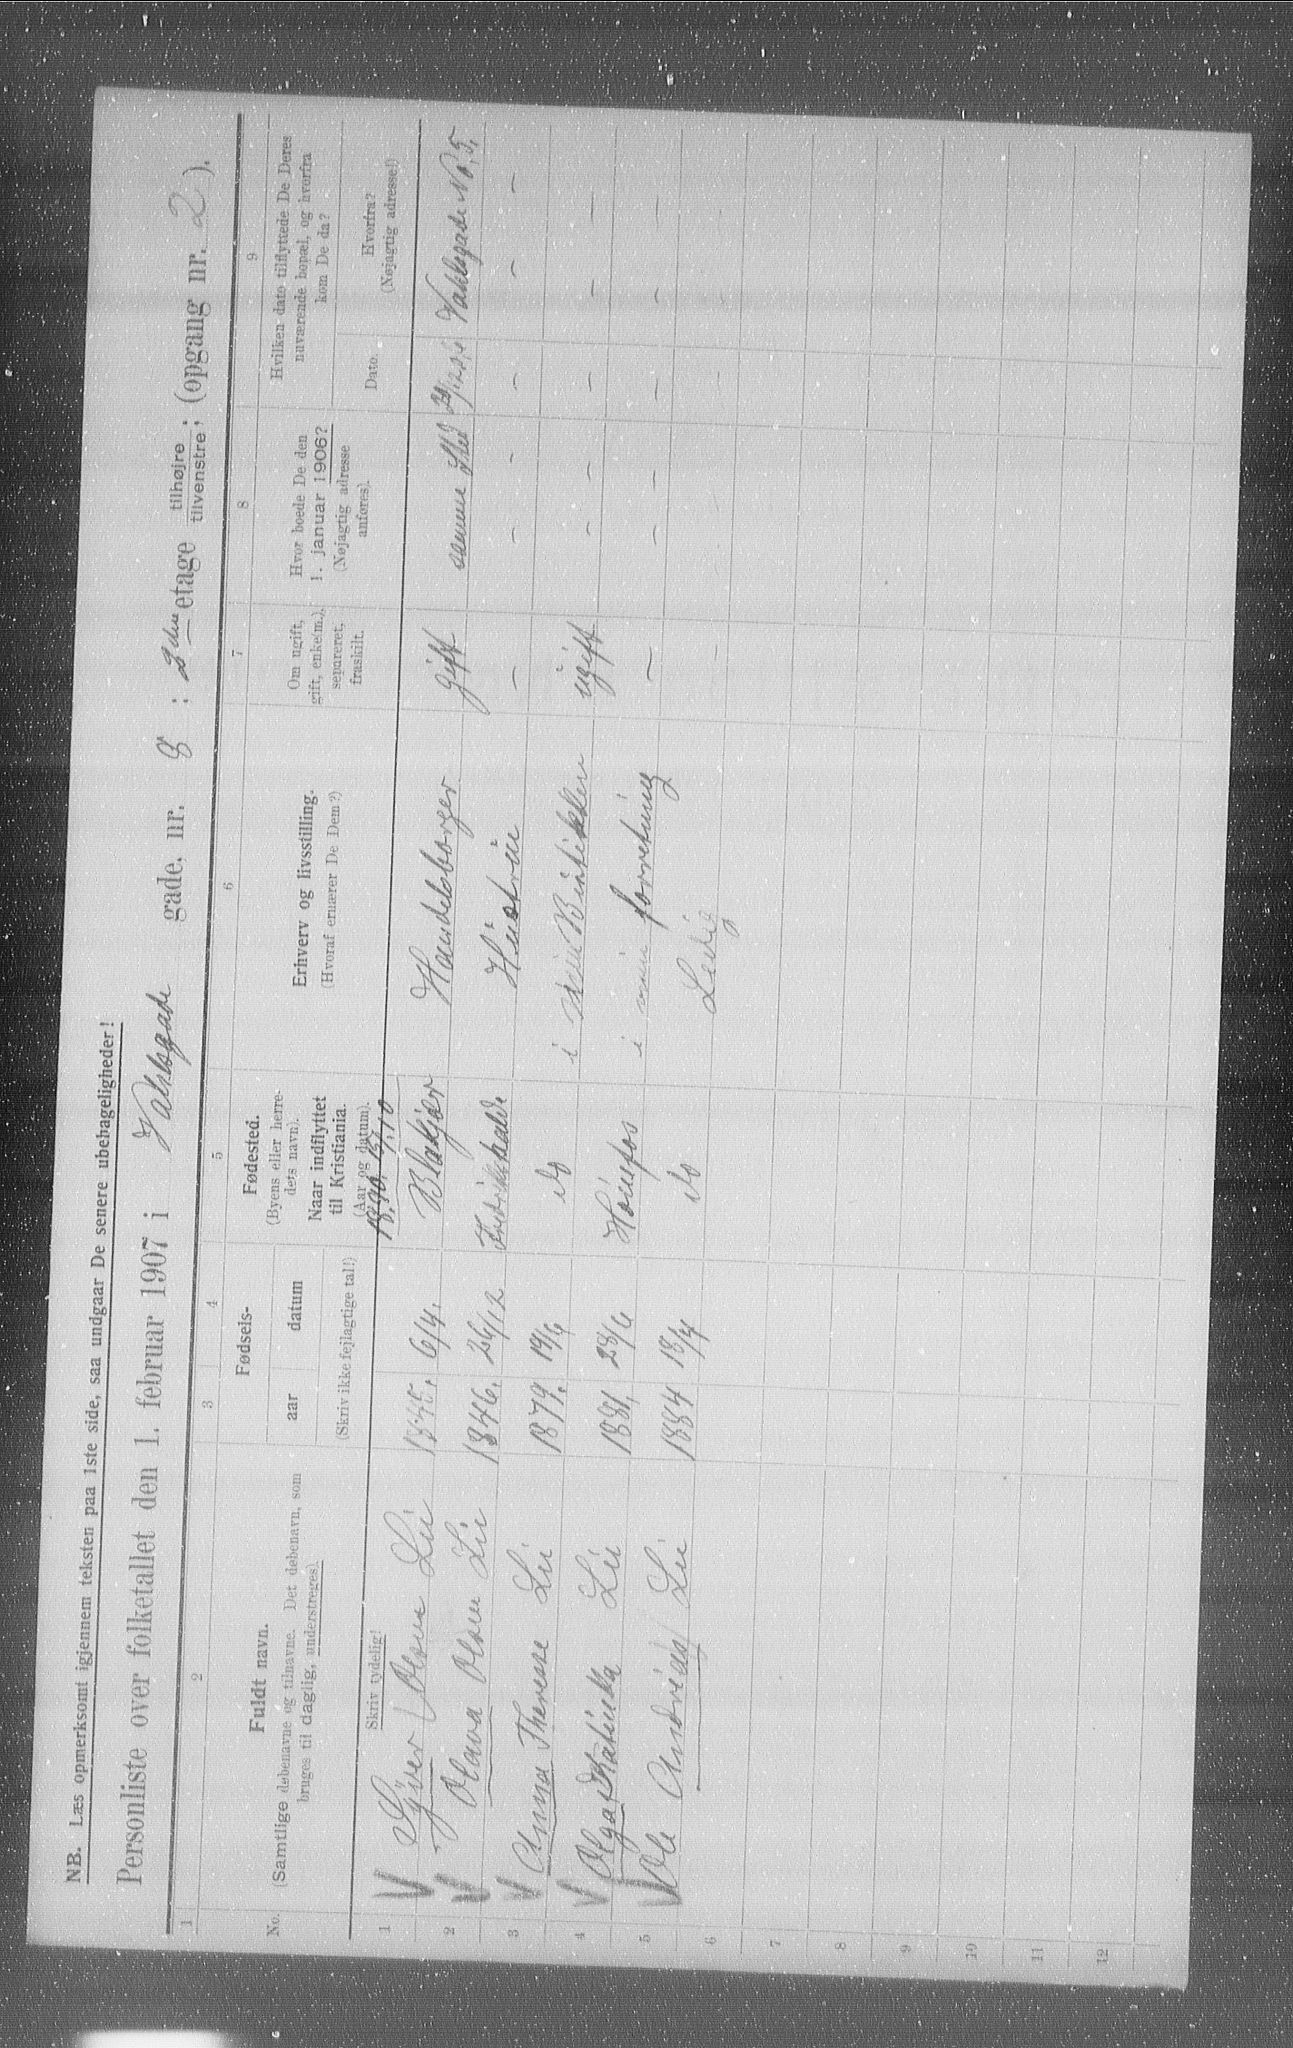 NB. Læs opmerksomt igjennem teksten paa 1ste side, saa undgaar De senere ubehageligheder!
Personliste over folketallet den 1. februar 1907 i Vahlsgade gade, nr. 8 : 2den etage tilhøjre, tilvenstre, (opgang nr. 2).
1 2 3 4 5 6 7 8 9
No.
Fuldt navn.
(Samtlige døbenavne og tilnavne. Det døbenavn, som
bruges til daglig, understreges).
Skriv tydelig!
Fødsels-
aar datum
(Skriv ikke fejlagtige tal!)
Fødested.
(Byens eller herre-
dets navn).
Naar indflyttet
til Kristiania.
(Aar og datum).
Erhverv og livsstilling.
(Hvoraf ernærer De Dem?)
Om ugift,
gift, enke(m.),
separeret,
fraskilt.
Hvor boede De den
1. januar 1906?
(Nøjagtig adresse
anføres).
Hvilken dato tilflyttede De Deres
nuværende bopæl, og hvorfra
kom De da?
Dato.
Hvorfra?
(Nøjagtig adresse!)
1 Syver Olsen Lie 1845. 6/4. Blakjær Handelsborger gift samme Sted Vahlsgade No 5,
2 Olava Olsen Lie 1846. 26/12 Hustru — — — — — —
3 Anna Theresse Lie 1879. 19/6 do i min Butikken ugift — — — — —
4 Olga Katinka Lie 1881, 28/6 Hønefos i min forretning — — — — — —
5 Ole Andreas Lie 1884 18/4 do Ledig — — —
6
7
8
9
10
11
12